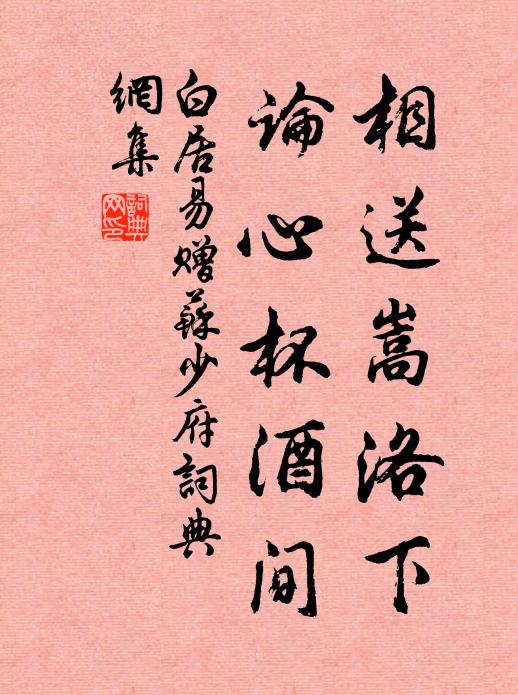 相送嵩洛下
論心杯酒间
白居易赠蘇少府詞典
網集
詞典网印